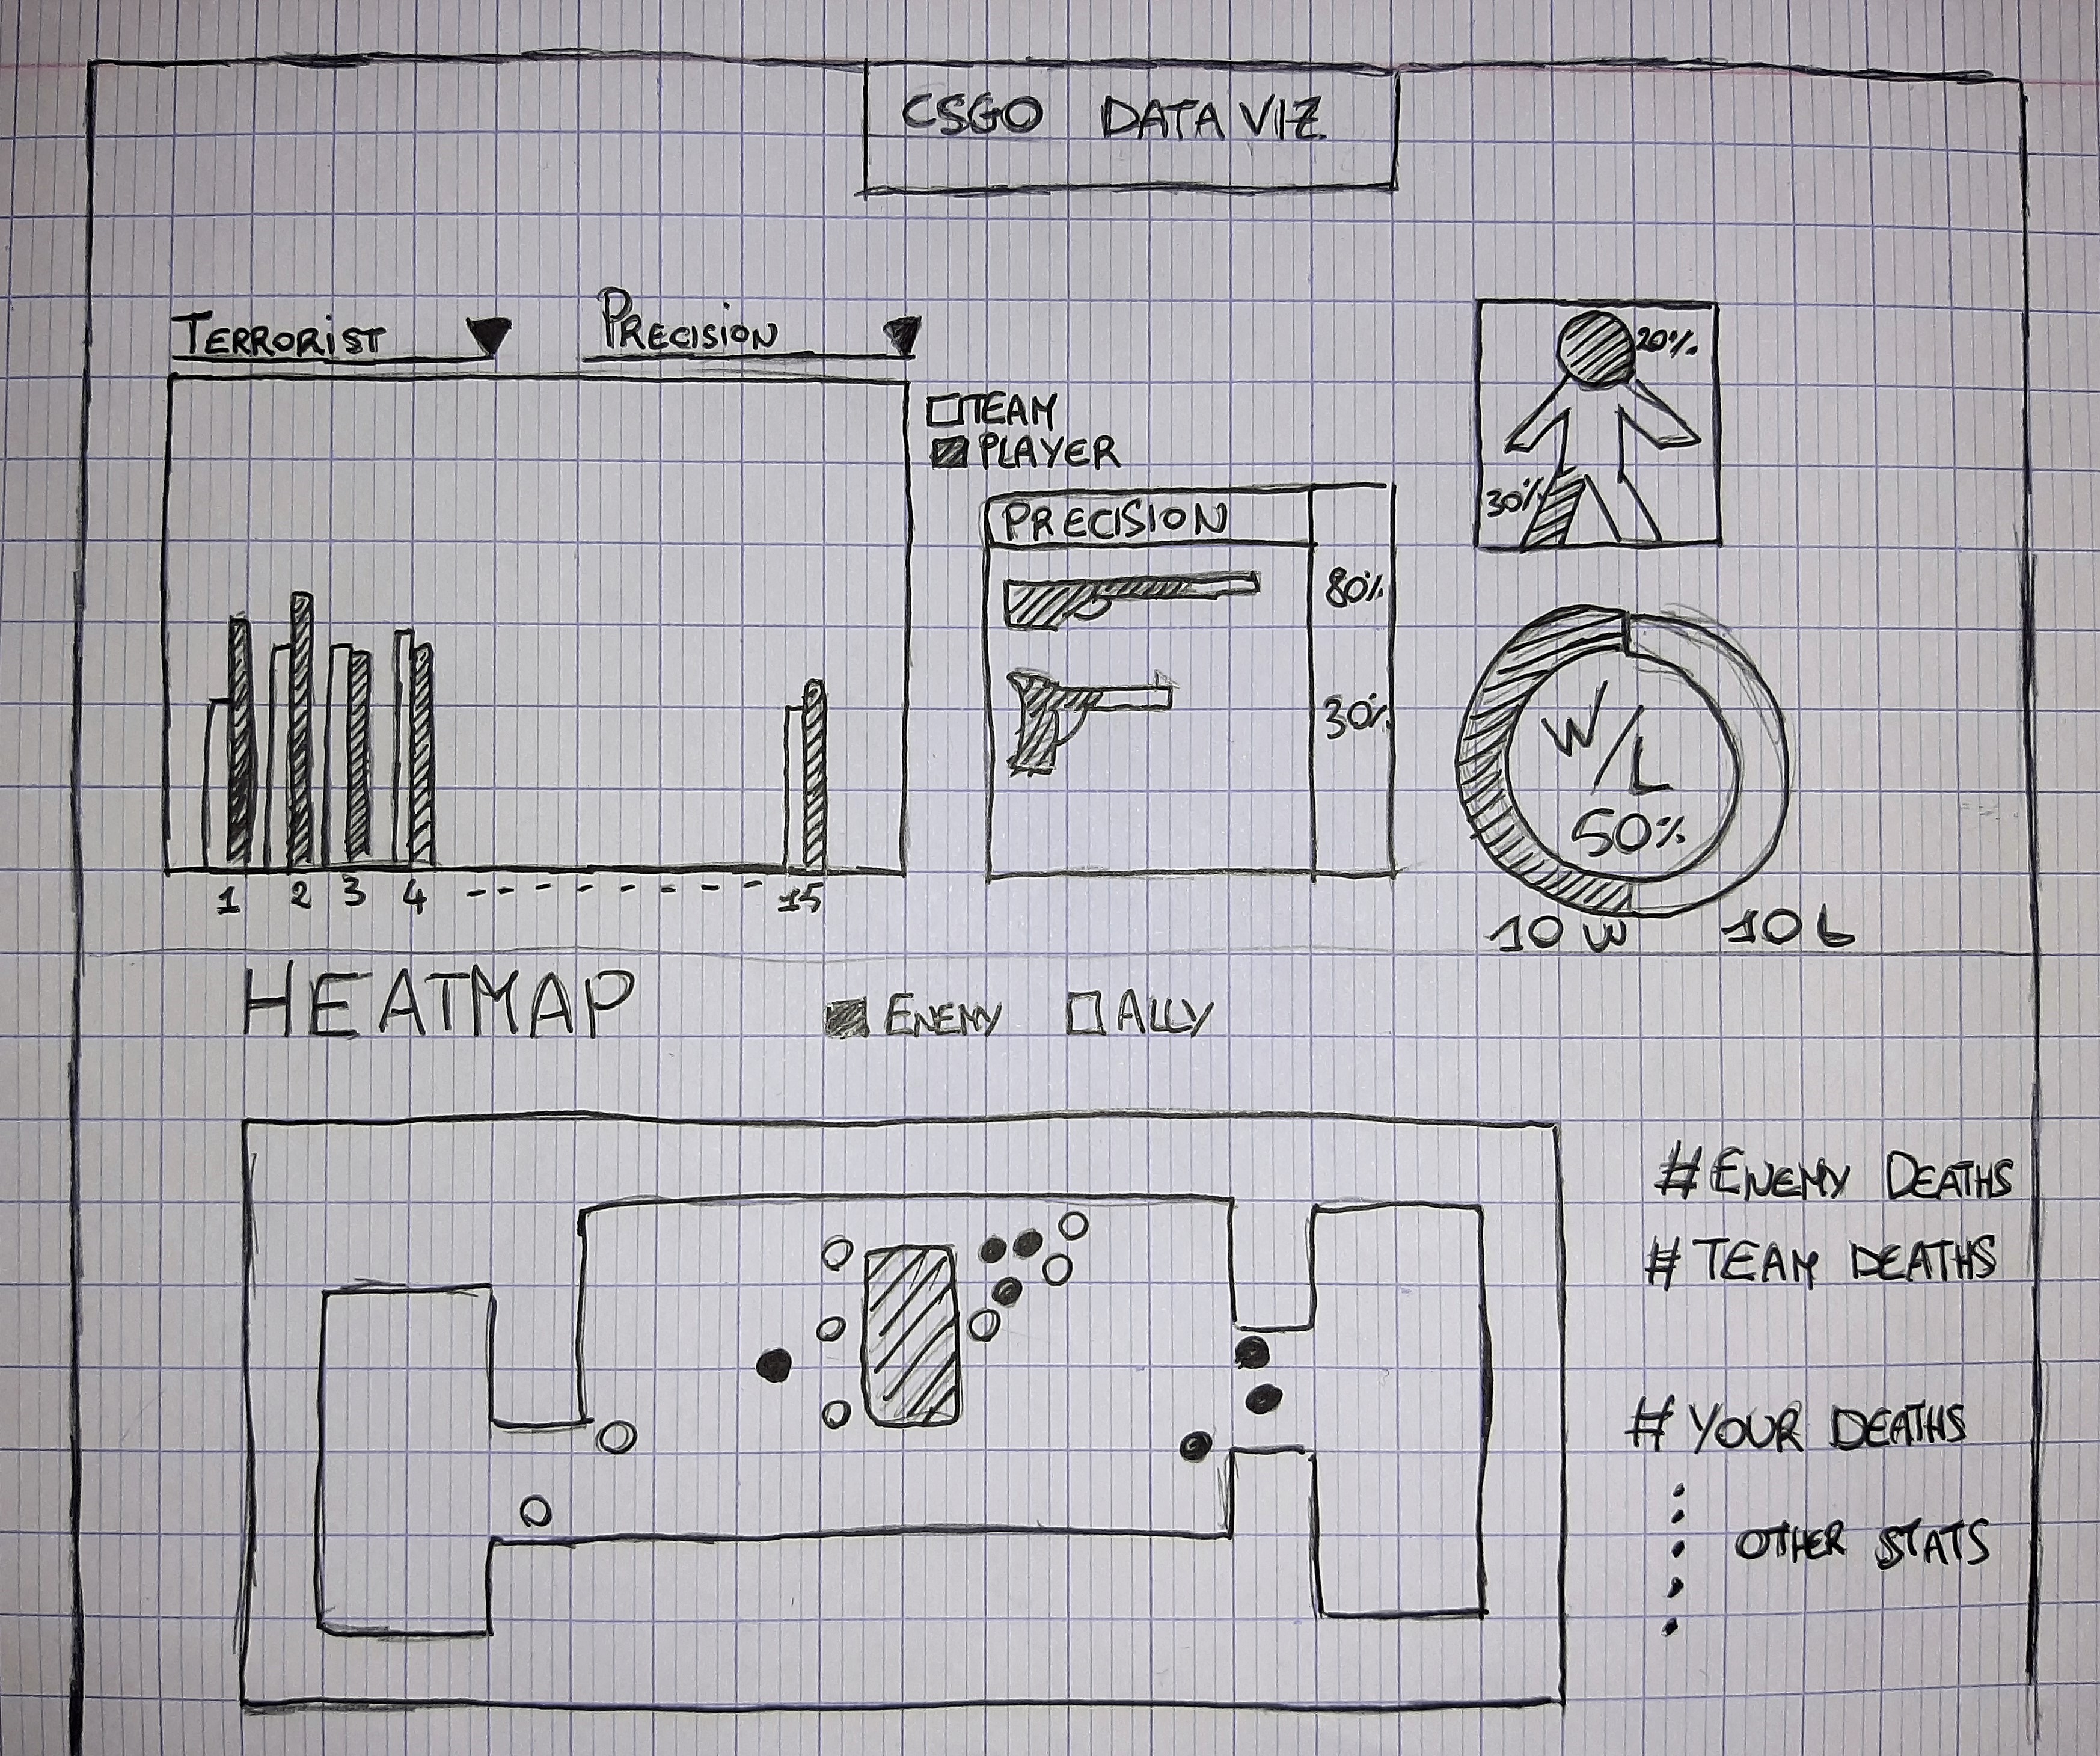 CSGO DATA VIZ
TERRORIST
PRECISION
TEAM
PLAYER
PRECISION
80%
30%
20%
30%
W/L
50%
10 W 10 L
1 2 3 4 -------- 15
HEATMAP
ENEMY ALLY
# ENEMY DEATHS
# TEAM DEATHS
# YOUR DEATHS
OTHER STATS